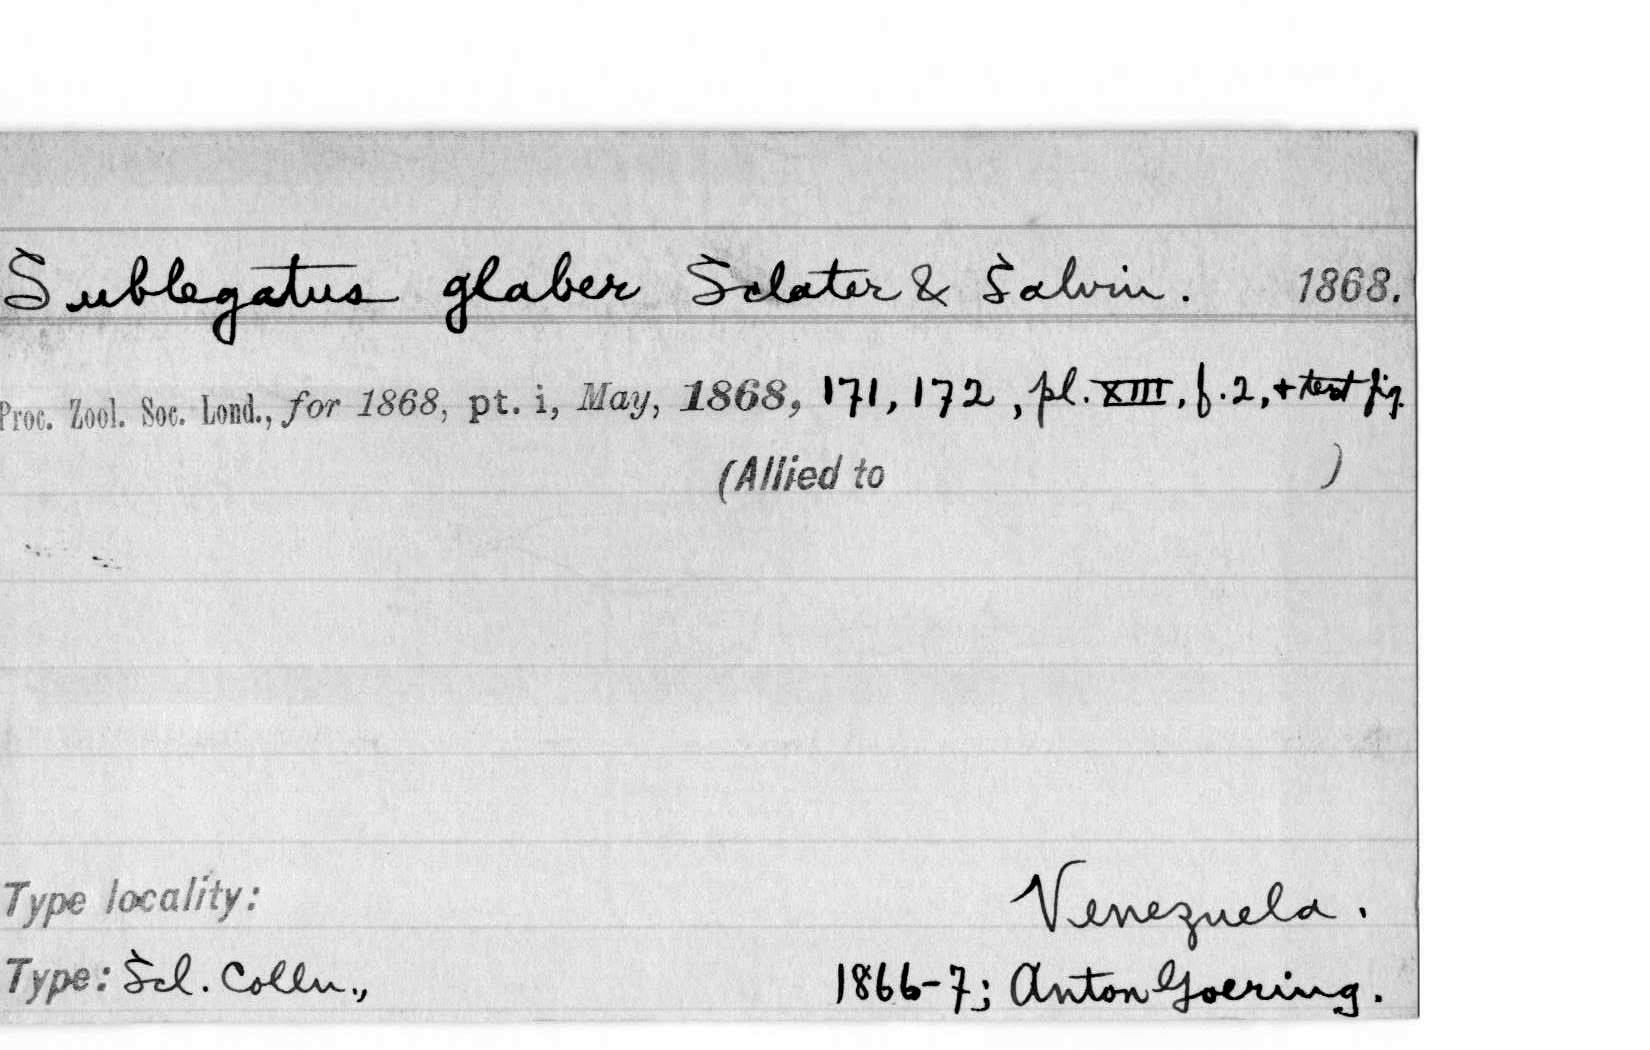 Sublegatus glaber Sclater & Salvin. 1868.
Proc. Zool. Soc. Lond., for 1868, pt. i, May, 1868, 171, 172, pl. XIII, f. 2, + text fig.
(Allied to )
Type locality: Venezuela.
Type: Scl. Colln., 1866-7; Anton Goering.